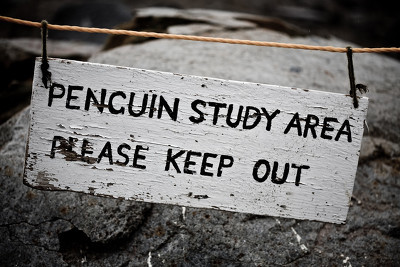 PENGUIN STUDY AREA
PLEASE KEEP OUT